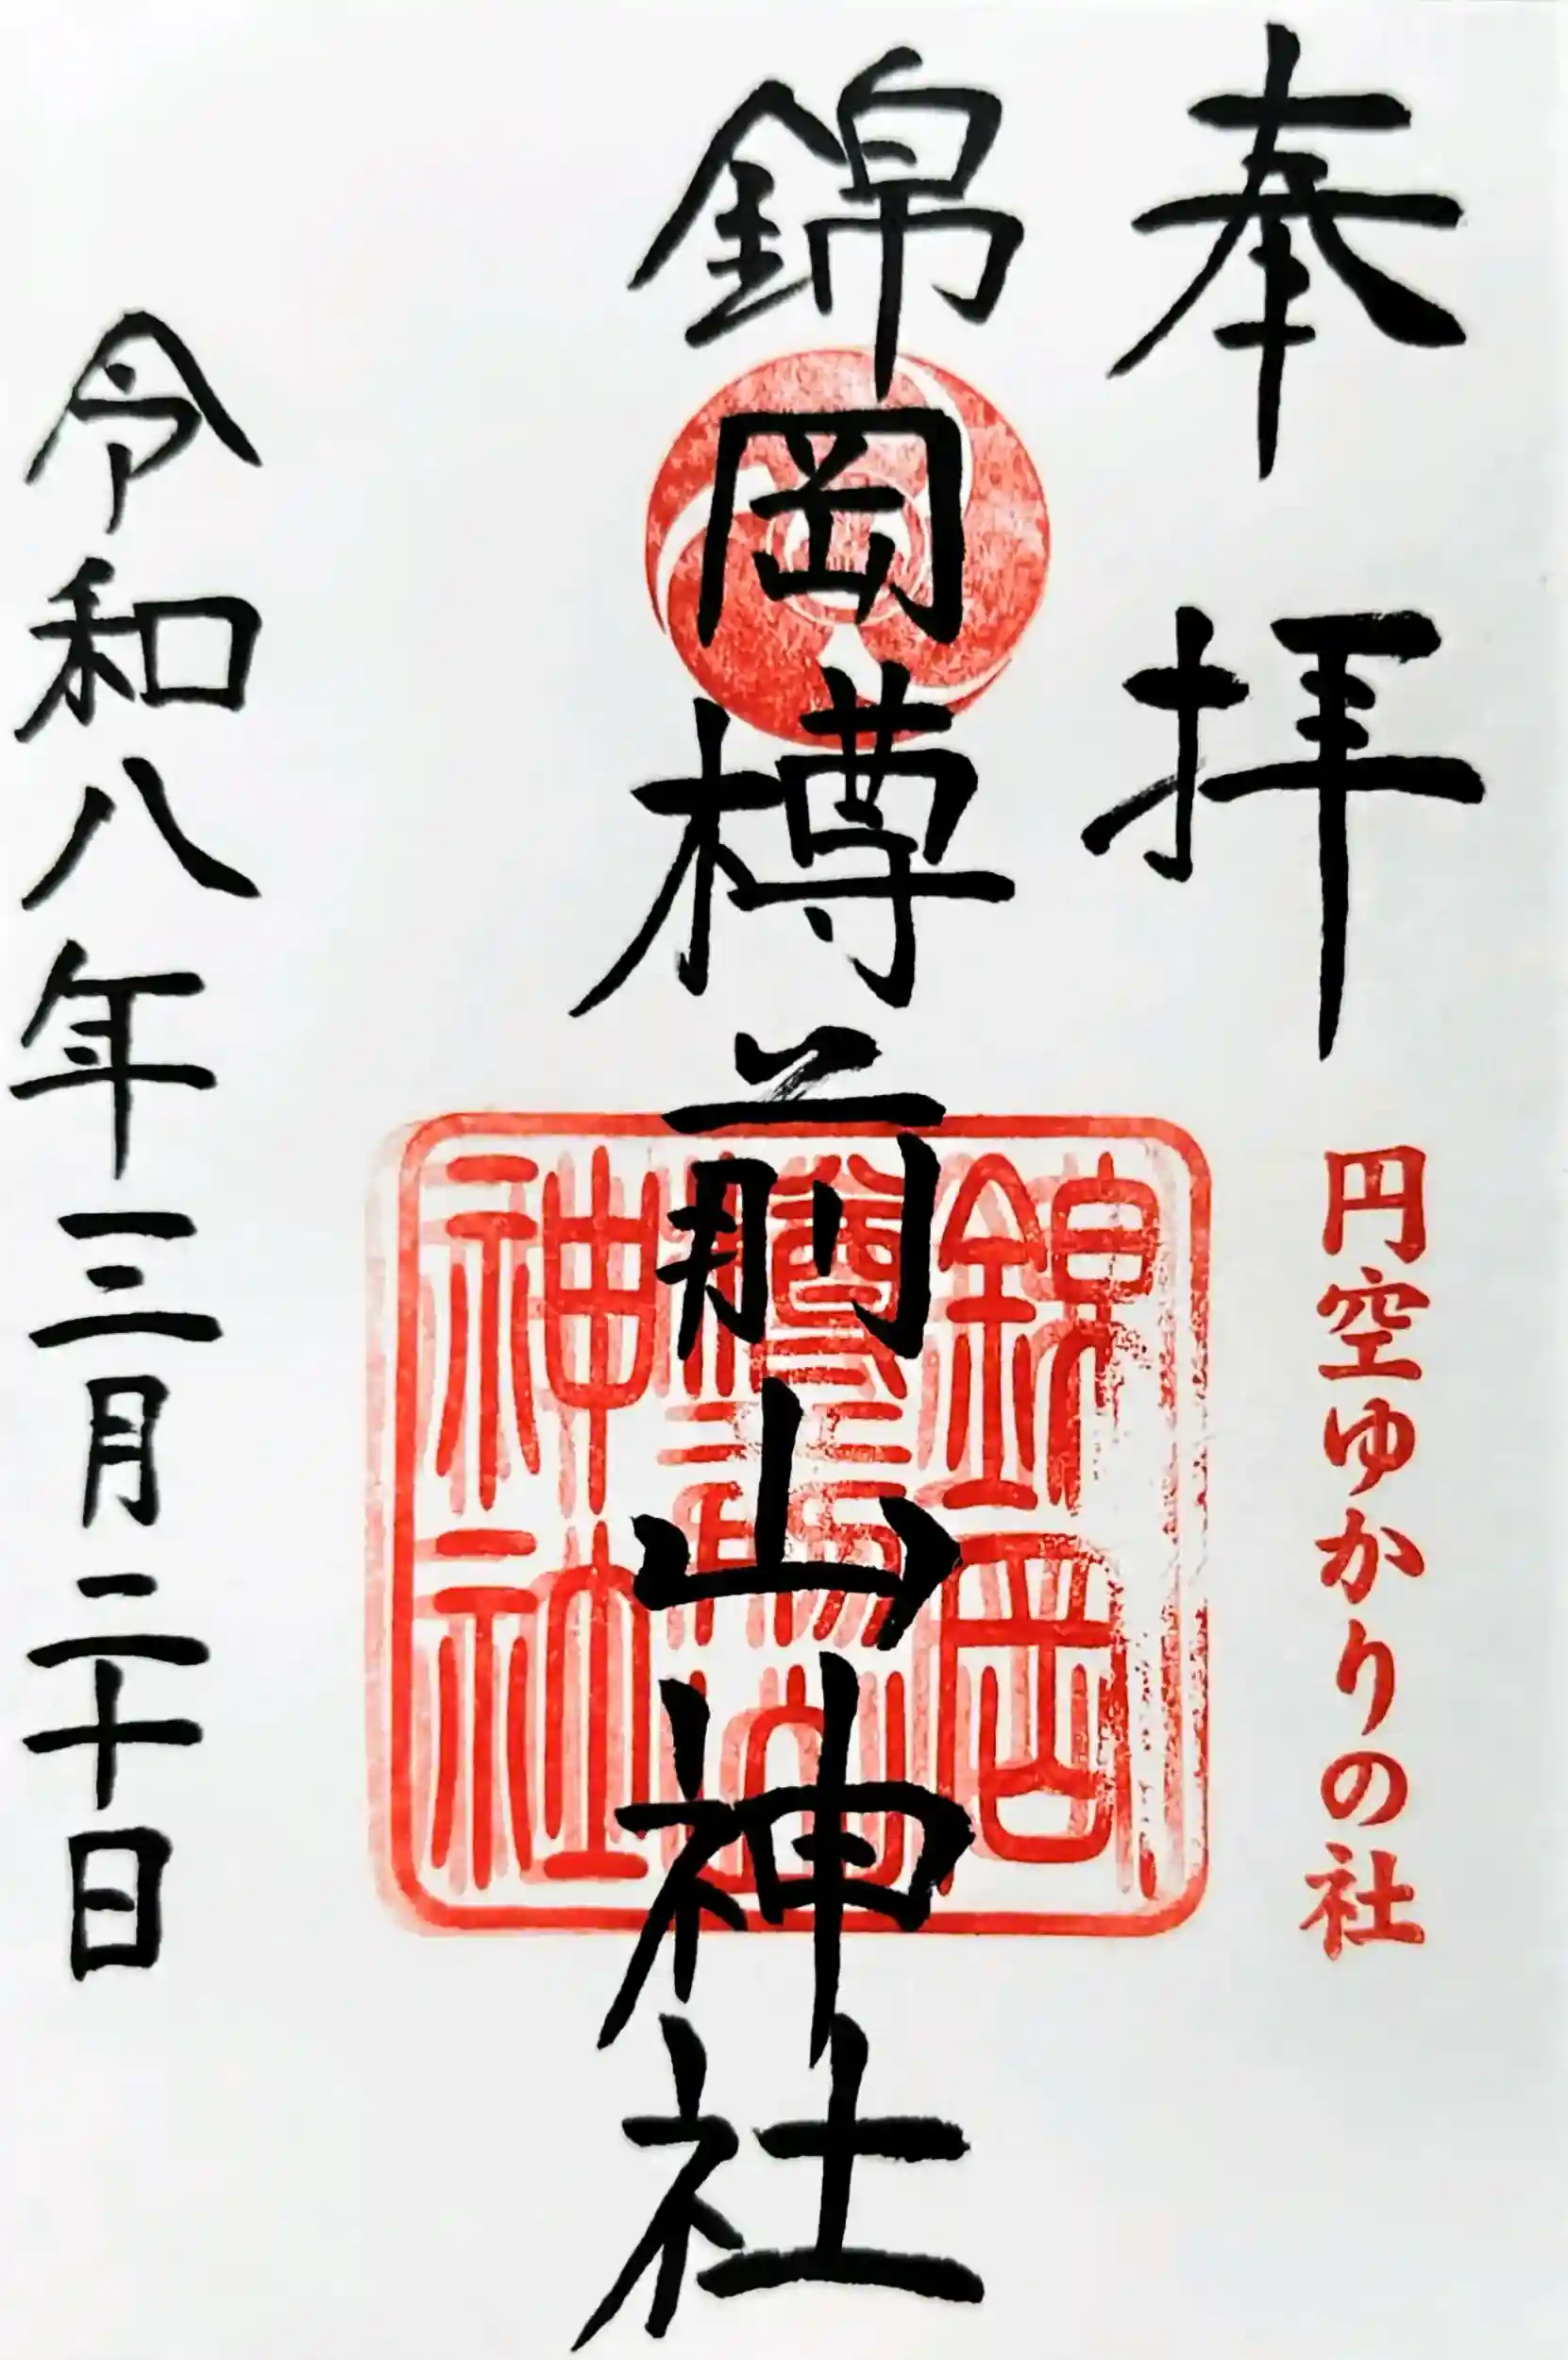 奉拝
円空ゆかりの社
錦岡樽前山神社
錦岡
樽前山
神社
令和八年三月二十日